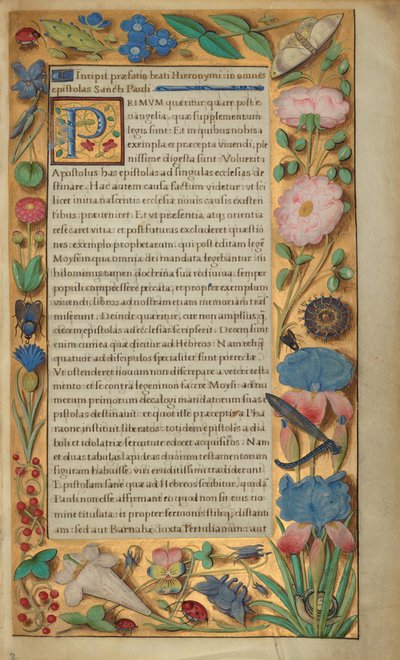 Incipit præfatio beati Hieronymi: in omnes
epistolas Sancti Pauli
PRIMVM quæritur: quare post e⸗
uangelia, quæ supplementum
legis sunt: Et in quibus nobis a
exempla, et præcepta viuendi, ple
nissime digesta sunt: Voluerit
Apostolus has epistolas ad singulas ecclesias de
stinare. Hac autem causa factum videtur: vt sci
licet initia nascentis ecclesiæ nouis causis existen
tibus, præueniret. Et vt præsentia, atque orientia
resecaret vitia: et post futuras excluderet quæstio
nes: exemplo prophetarum: qui post editam legē
Moysi in qua omnia dei mandata legebantur: ni
hilominus tamen doctrina sua rediuiua, semper
populi compressere peccata, et propter exemplum
viuendi, libros, ad nostram etiam memoriam trās
miserunt. Deinde quæritur, cur non amplius q̄
decem epistolas ad ecclesias scripserit. Decem sunt
enim cum ea quæ dicitur ad Hebreos: Nam reliq̄
quatuor ad discipulos specialiter sunt porrectæ.
Vt ostenderet nouum non discrepare a veteri testa
mento: et se contra legem non facere Moysi: ad nu
merum primorum decalogi mandatorum suas e
pistolas destinauit: et quot ille præceptis a Pha
raone instituit liberatos: totidem epistolis a dia
boli et idolatriæ seruitute edocet acquisitos: Nam
et duas tabulas lapideas duorum testamentorum
figuram habuisse, viri eruditissimi tradiderunt.
Epistolam sane quæ ad Hebreos scribitur, quidā
Pauli non esse affirmant: eo quod non sit eius no⸗
mine titulata: et propter sermonis stiliq; distanti
am: sed aut Barnabæ, iuxta Tertulianum: aut